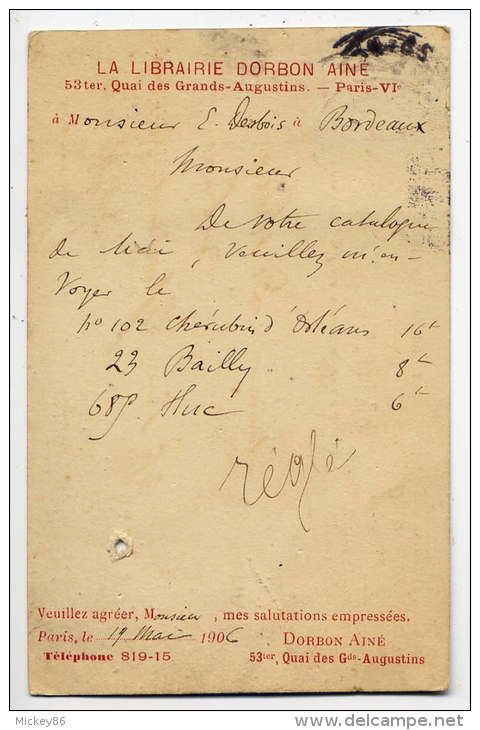 LA LIBRAIRIE DORBON AINÉ
53ter, Quai des Grands-Augustins. — Paris-VIe
à Monsieur E. Desbois à Bordeaux
Monsieur
De votre catalogue
de Mai, Veuillez m'en-
voyer le
No 102 Chérubin d'Orléans 16 f
23 Bailly 8 f
685 Huc 6 f
réglé
Veuillez agréer, Monsieur, mes salutations empressées.
Paris, le 19 Mai 1906 DORBON AINÉ
Téléphone 819-15 53ter, Quai des Gds-Augustins
Mickey86
delcampe.net